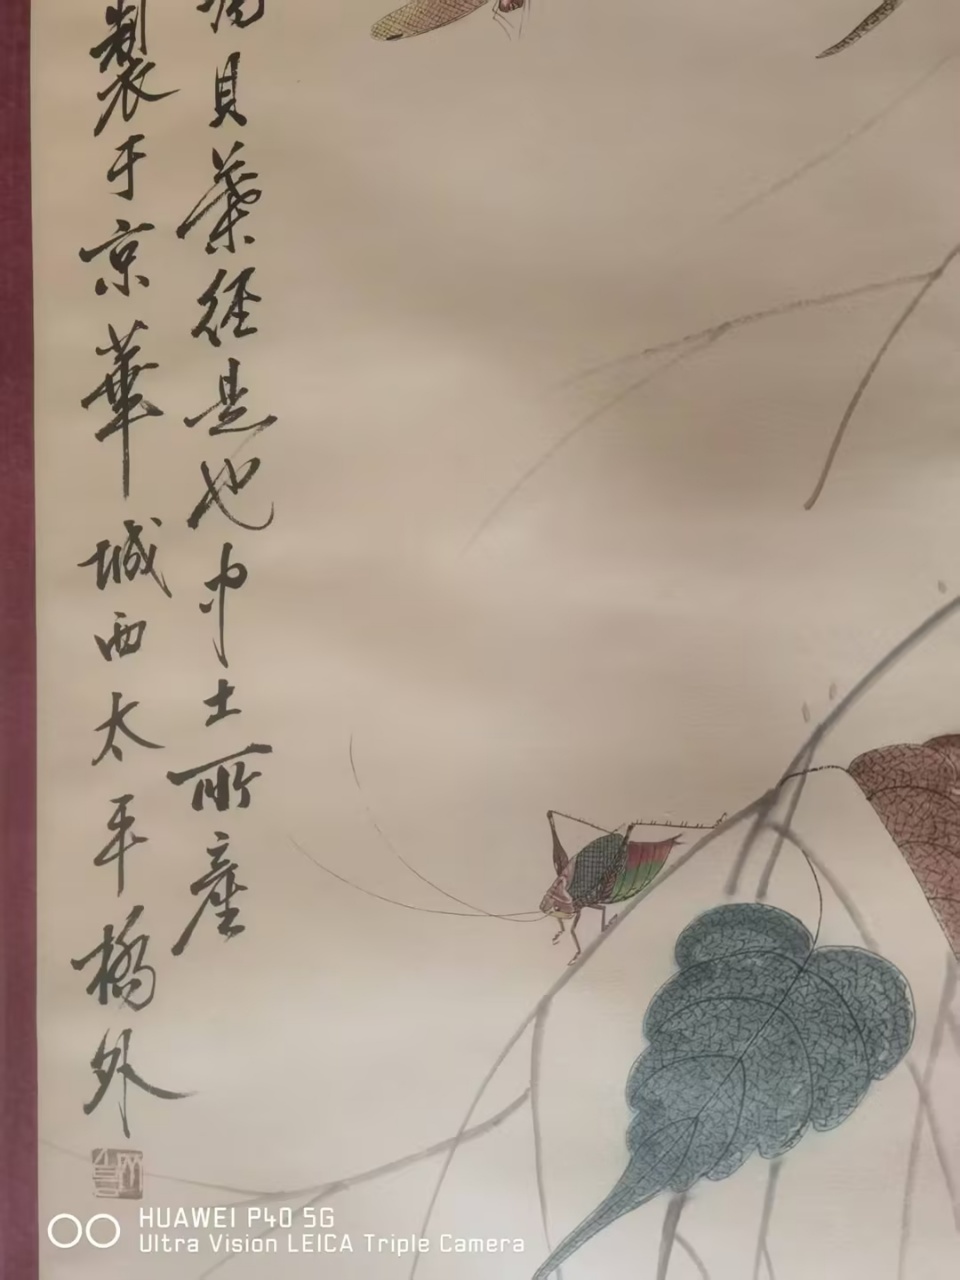 貝葉經是也中土所產
製于京華城西太平橋外
HUAWEI P40 5G
Ultra Vision LEICA Triple Camera